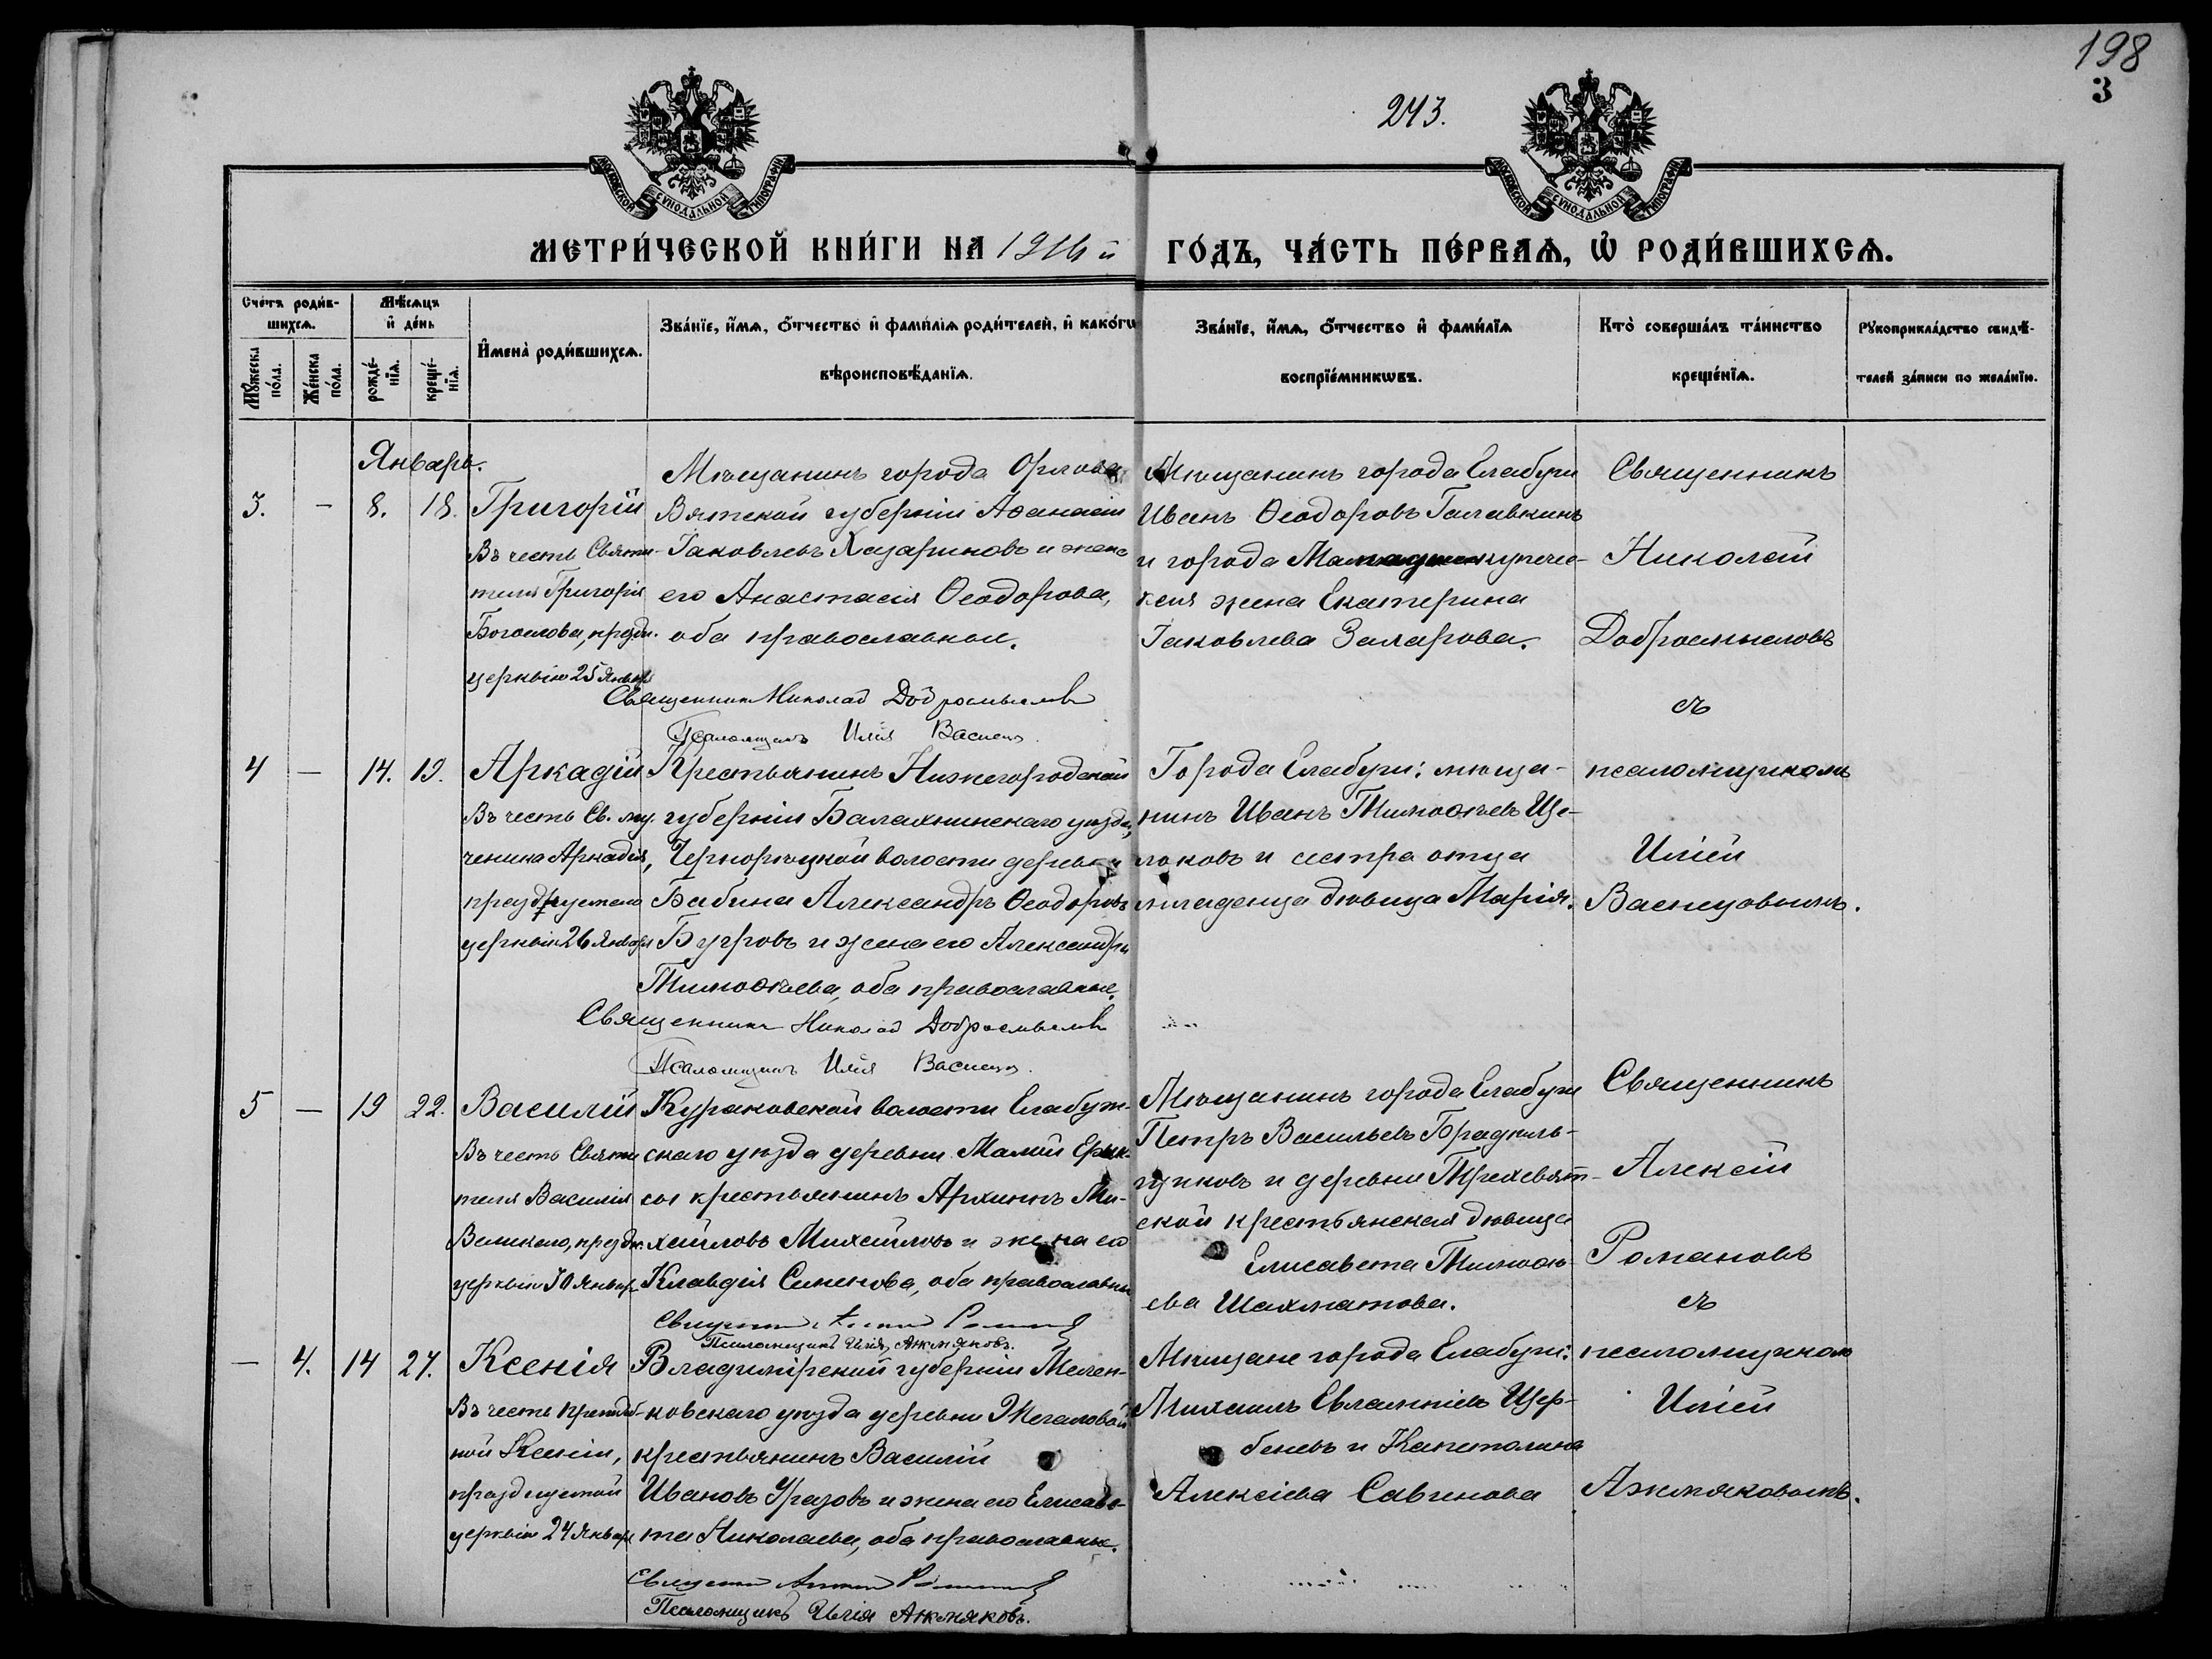 198
3
243.
МОСКОВСКОЙ СѴНОДАЛЬНОЙ ТИПОГРАФИИ
МОСКОВСКОЙ СѴНОДАЛЬНОЙ ТИПОГРАФИИ
МЕТРИ́ЧЕСКОЙ КНИ́ГИ НА 1916 й ГО́ДЪ, ЧА́СТЬ ПЕ́РВАѦ, Ѡ҆ РОДИ́ВШИХСѦ.
Сче́тъ роди́в-
шихсѧ.
Мꙋ́жеска по́ла.
Же́нска по́ла.
Мѣ́сѧцъ
и҆ де́нь
рожде́-
нїѧ.
креще́-
нїѧ.
И҆мена̀ роди́вшихсѧ.
Зва́нїе, и҆́мѧ, ѻ҆́тчество и҆ фами́лїѧ роди́телей, и҆ како́гѡ
вѣроисповѣ́данїѧ.
Зва́нїе, и҆́мѧ, ѻ҆́тчество и҆ фами́лїѧ
воспрїе́мникѡвъ.
Кто̀ соверша́лъ та́инство
креще́нїѧ.
Рꙋкоприкла́дство свидѣ́-
телей за́писи по жела́нїю.
Январь.
3.
-
8.
18.
Григорій
Въ честь Святи-
теля Григорія
Богослова, праздн.
церковію 25 Января
Мѣщанинъ города Орлова
Вятской губерніи Аѳанасій
Іаковлевъ Хазариновъ и жена
его Анастасія Ѳеодорова,
оба православные.
Священникъ Николай Добросмысловъ
Псаломщикъ Илія Васнецовъ.
Мѣщанинъ города Елабуги
Иванъ Ѳеодоровъ Галавкинъ
и города купече-
ская жена Екатерина
Іаковлева Захарова.
Священникъ
Николай
Добросмысловъ
съ
4
—
14.
19.
Аркадій
Въ честь Св. му-
ченика Аркадія,
празднуемаго
церковію 26 Января
Крестьянинъ Нижегородской
губерніи Балахнинскаго уѣзда,
Чернорѣцкой волости деревни
Бабина Александръ Ѳеодоровъ
Бугровъ и жена его Александра
Тимоѳѣева, оба православные.
Священникъ Николай Добросмысловъ
Псаломщикъ Илія Васнецовъ.
Города Елабуги: мѣща-
нинъ Иванъ Тимоѳѣевъ Ще-
локовъ и сестра отца
младенца дѣвица Марія.
псаломщикомъ
Иліей
Васнецовымъ.
5
—
19
22.
Василій
Въ честь Святи
теля Василія
Великаго, праздн.
церковію 30 Января
Кураковской волости Елабуж-
скаго уѣзда деревни Малой Ерык-
сы крестьянинъ Архиппъ Ми-
хайловъ Михайловъ и жена его
Клавдія Семенова, оба православны
Священникъ Алексій Романовъ
Псаломщикъ Илія Ажмяковъ.
Мѣщанинъ города Елабуги
Петръ Васильевъ
и деревни Трехсвят-
ской крестьянская дѣвица
Елисавета Тимоѳѣ-
ева Шахматова.
Священникъ
Алексій
Романовъ
съ
—
4.
14
27.
Ксенія
Въ честь преподоб-
ной Ксеніи,
празднуемой
церковію 24 Января
Владимірской губерніи Мелен-
ковскаго уѣзда деревни Жегаловой
крестьянинъ Василій
Ивановъ Фразовъ и жена его Елисаве-
та Николаева, оба православные.
Священникъ Алексій Романовъ
Псаломщикъ Илія Ажмяковъ.
Мѣщане города Елабуги:
Михаилъ Евлампіевъ Щер-
беневъ и Капитолина
Алексіева Савинова
псаломщикомъ
Иліей
Ажмяковымъ.